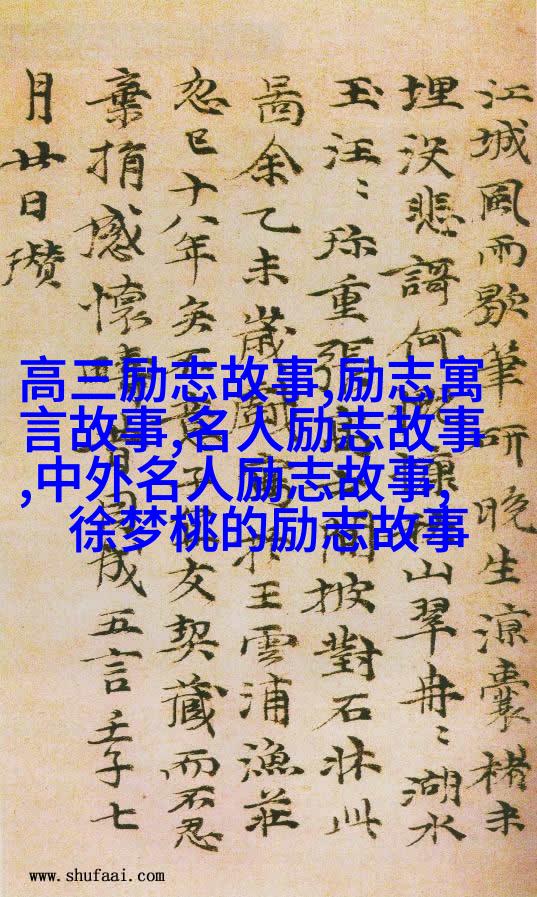 江城風雨歇筆研晚生涼囊楮未
埋没悲謌何慷山翠冉〻湖水
玉汪〻珎重張閒披對石牀此
啚余乙未歲戲寫於王雲浦漁莊
忽已十八年矣不子友契藏而不忍
棄捐感懷成五言壬子七
月廿日瓚
高三励志故事,励志寓
言故事,名人励志故事
,中外名人励志故事,
徐梦桃的励志故事
www.shufaai.com